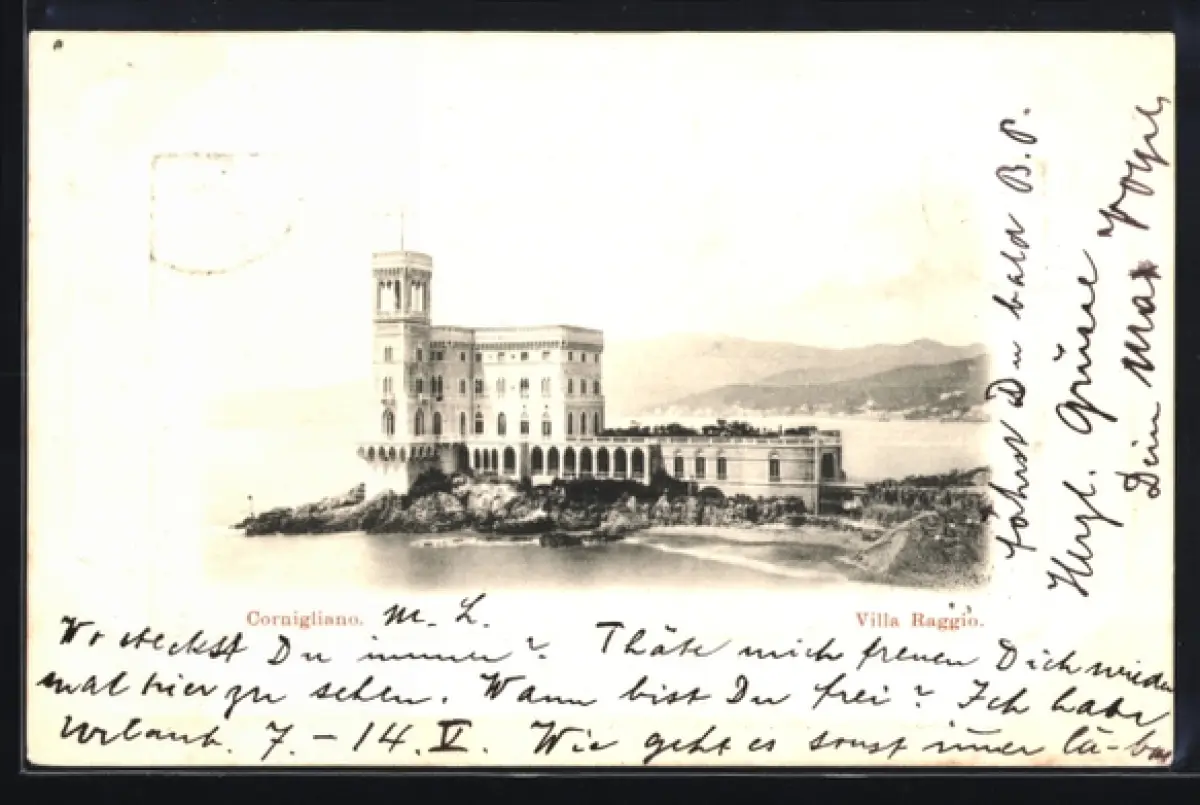 Cornigliano. M. L. Villa Raggio.
Wo steckst Du immer? Thäte mich freuen Dich wieder
mal hier zu sehen. Wann bist Du frei? Ich habe
Urlaub. 7. - 14. V. Wie geht es sonst immer
fährst Du bald B.P.
Herzl. Grüsse
Dein Max Vogel,